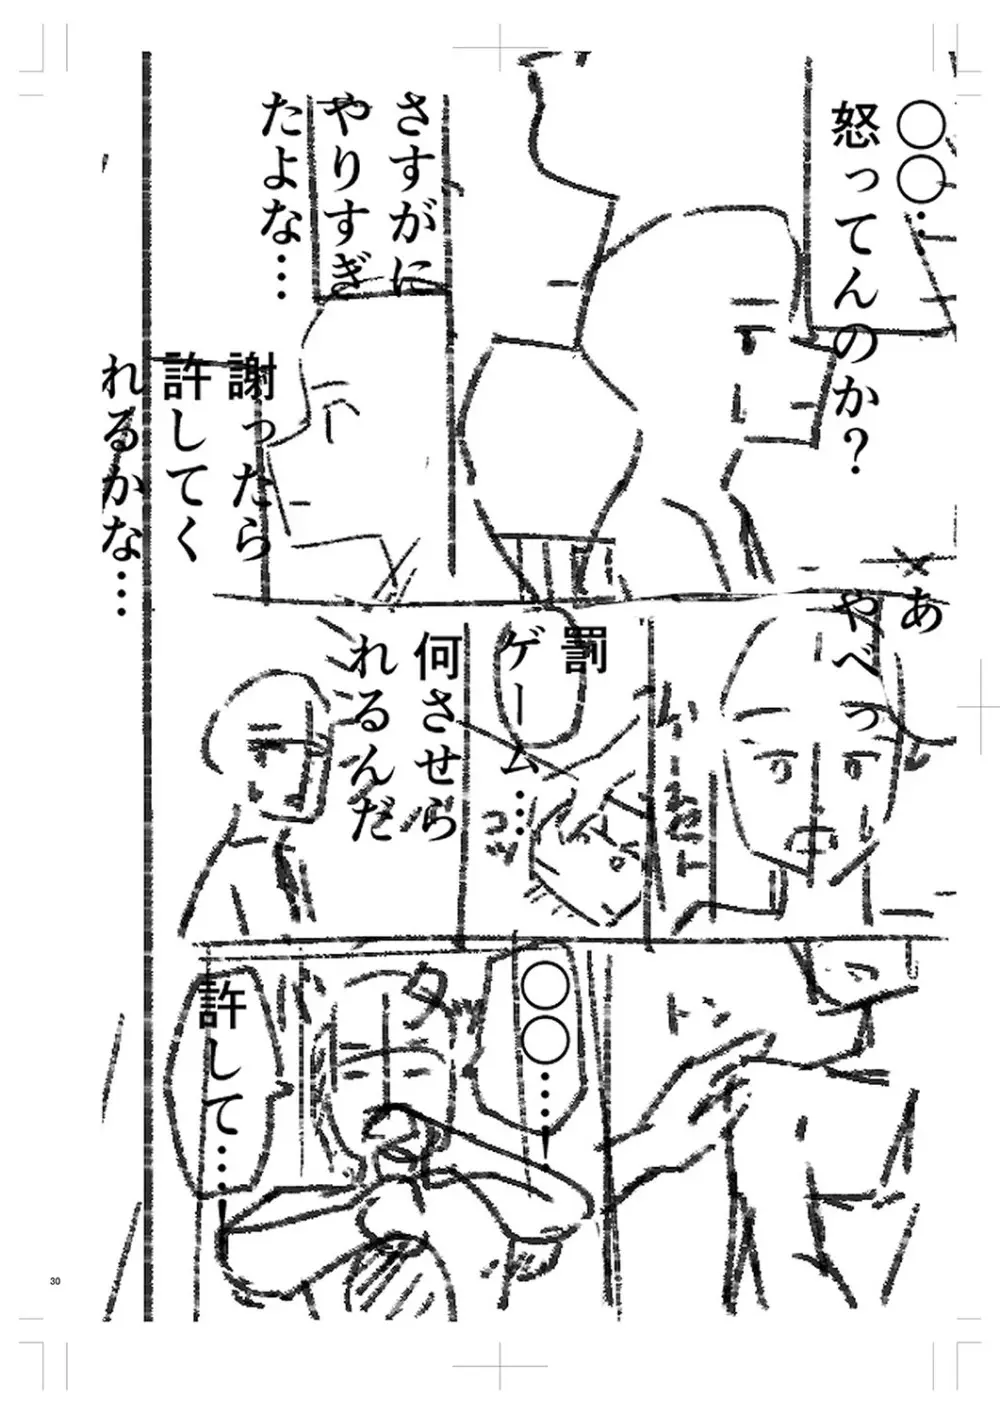 〇〇…
怒ってんのか？
さすがに
やりすぎ
たよな…
謝ったら
許してく
れるかな…
あ
やべっ
罰
ゲーム…
何させら
れるんだ
トン
〇〇……！
ダッ
許して…！
30